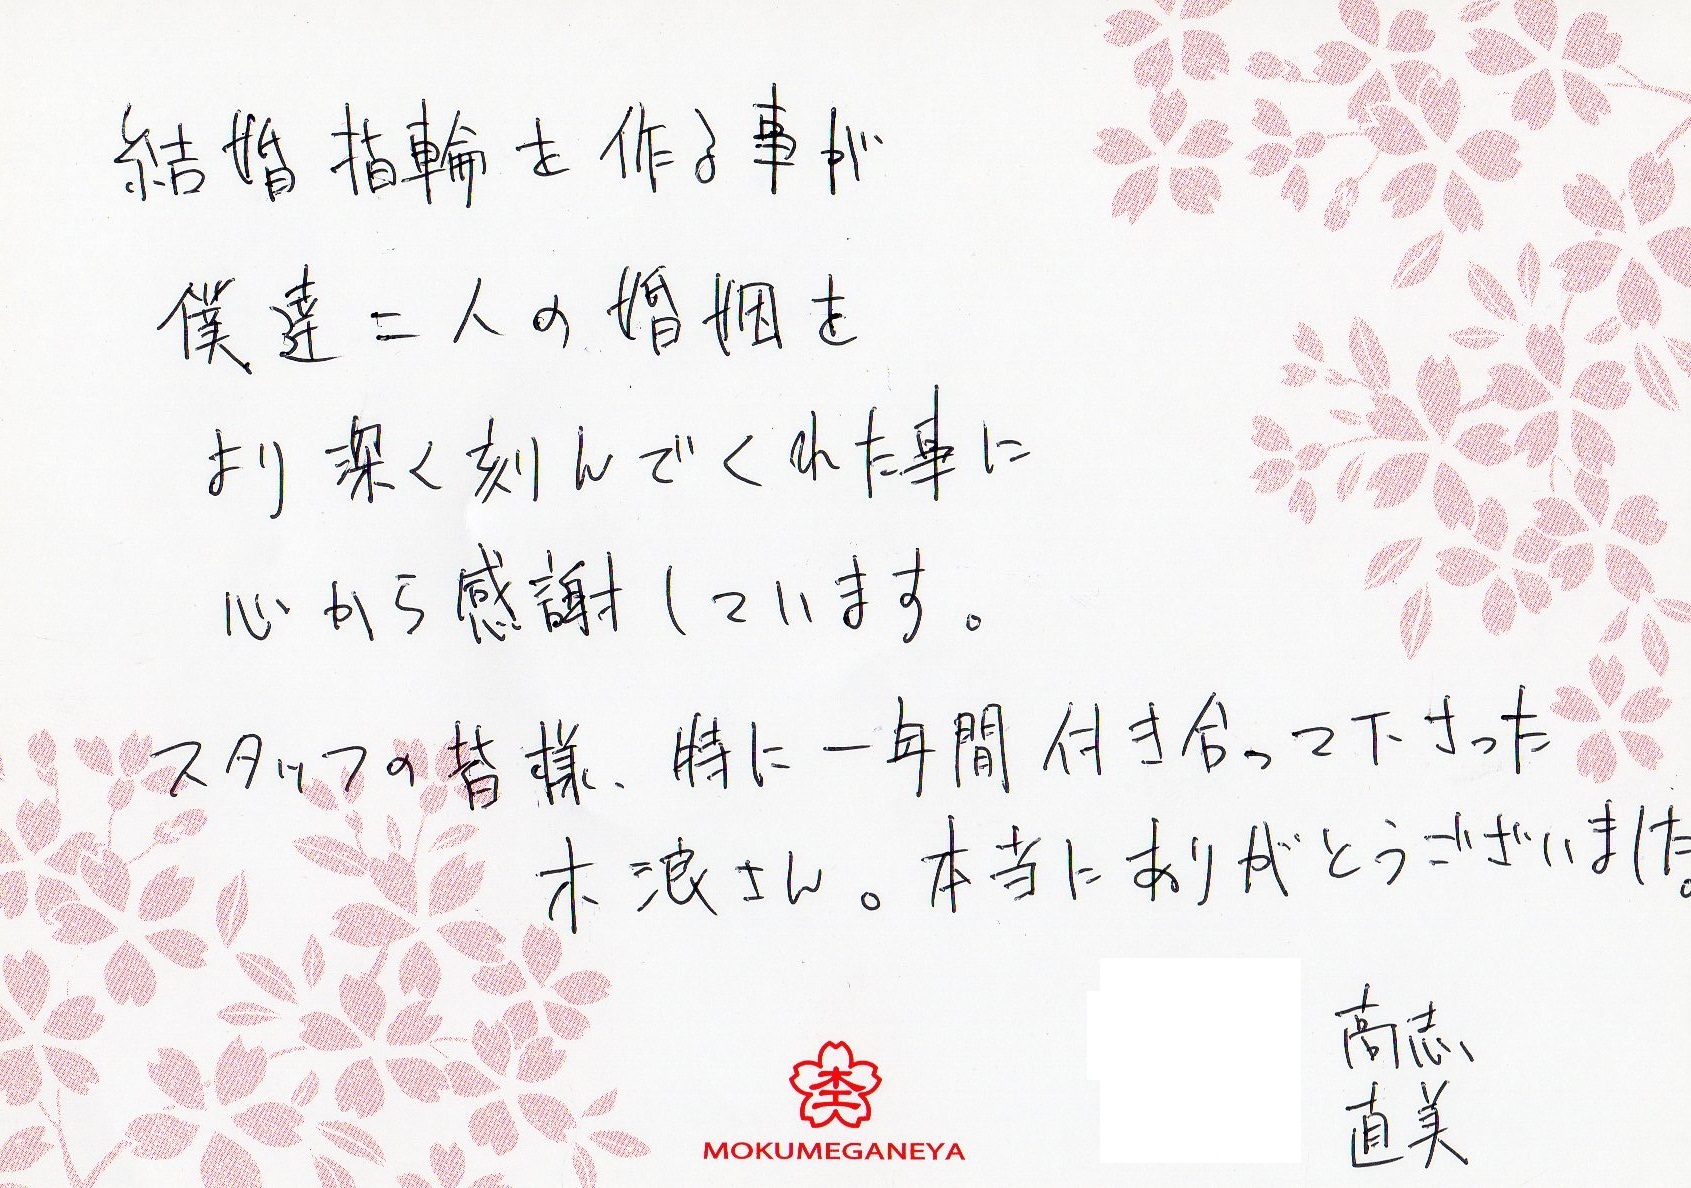 結婚指輪を作る事が
僕達二人の婚姻を
より深く刻んでくれた事に
心から感謝しています。
スタッフの皆様、特に一年間付き合って下さった
木浪さん。本当にありがとうございました。
高志
直美
MOKUMEGANEYA